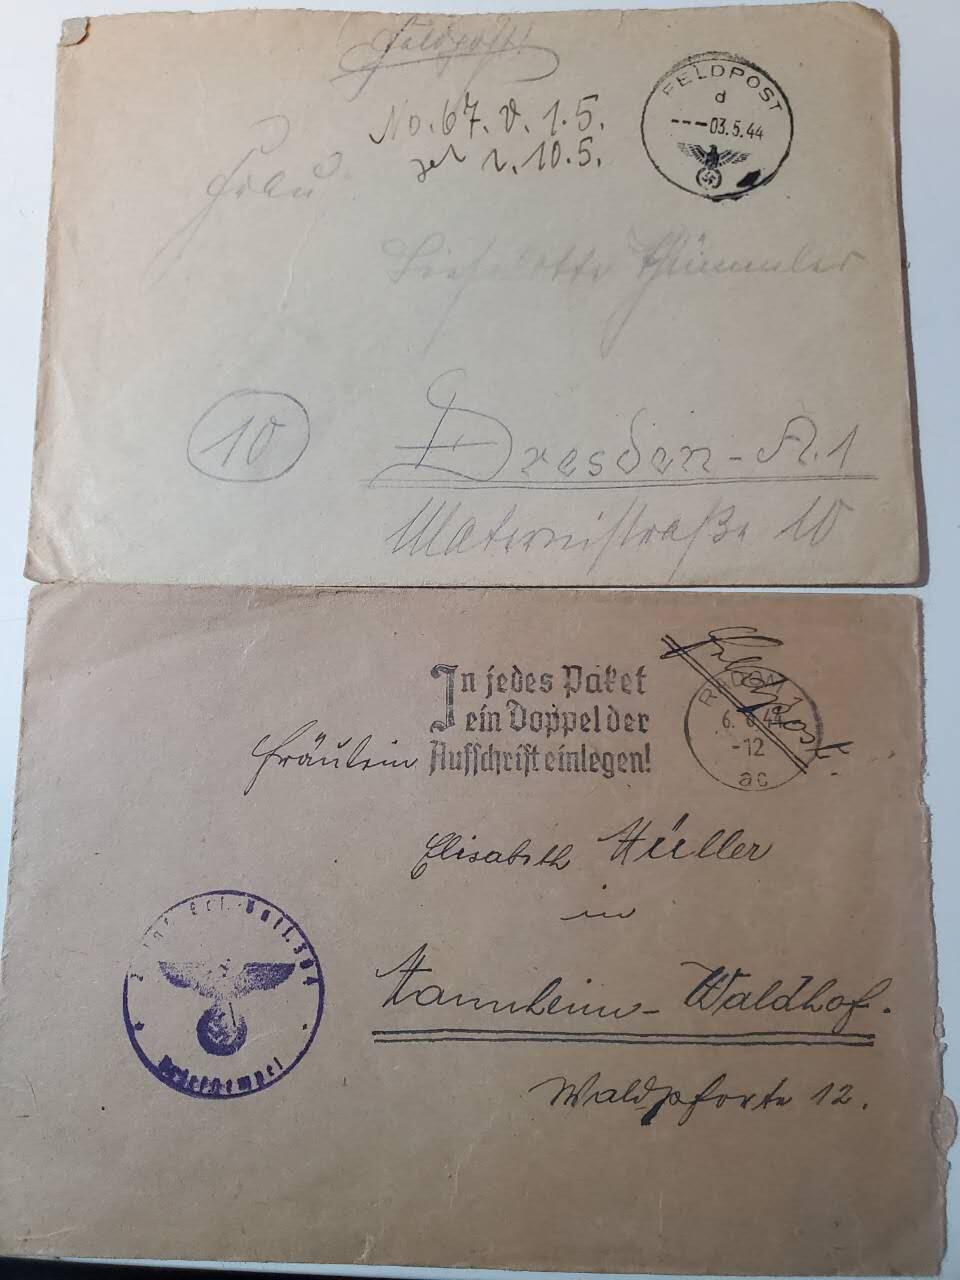 Feldpost!
No. 67. v. 1.5.
r. 10.5.
FELDPOST
d
---03.5.44
Frau
Lieselotte Thümmler
10
Dresden-A.1
Maternistraße 10
Feldpost.
In jedes Paket
ein Doppel der
Aufschrift einlegen!
RADOM 1
6. 6 44
-12
ac
Fräulein
Elisabeth Müller
in
Mannheim-Waldhof.
Waldpforte 12.
Briefstempel